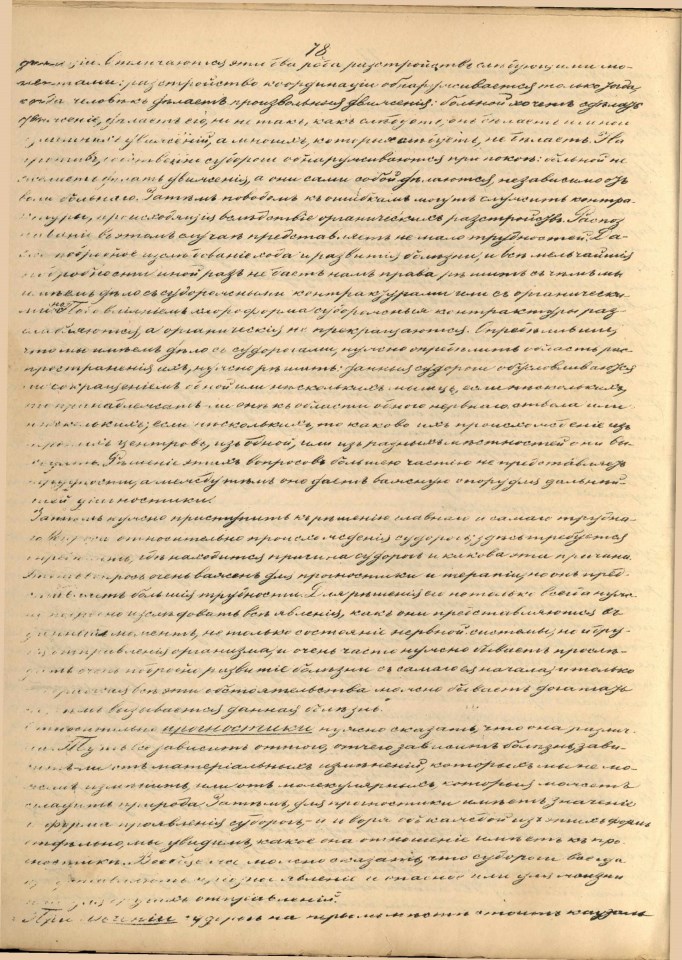 78
отличаются эти два рода разстройствъ слѣдующими мо-
ментами: разстройство координаціи обнаруживается только тогда,
когда человѣкъ дѣлаетъ произвольныя движенія: больной хочетъ сдѣлать
движеніе, дѣлаетъ его, но не такъ, какъ слѣдуетъ,
движеній, а многихъ, которыхъ не дѣлаетъ. На
противъ, судороги обнаруживаются при покоѣ: больной не
желаетъ дѣлать движенія, а они сами собой дѣлаются, независимо отъ
воли больного. Затѣмъ поводомъ къ ошибкамъ могутъ служить контра-
ктуры, происходящія вслѣдствіе органическихъ разстройствъ. Распоз
наваніе въ этомъ случаѣ представляетъ не мало трудностей. Да-
же подробное изслѣдованіе хода и развитія болѣзни, и всѣ мельчайшія
подробности иной разъ не даетъ намъ права рѣшить съ чѣмъ мы
имѣемъ дѣло съ судорожными контрактурами или съ органически-
ми. Подъ вліяніемъ хлороформа судорожныя контрактуры раз-
слабляются, а органическія не прекращаются. Опредѣливши,
что мы имѣемъ дѣло съ судорогами, нужно опредѣлить область рас-
пространенія ихъ, нужно рѣшить: данныя судороги обусловливаются
ли сокращеніемъ одной или нѣсколькихъ мышцъ, если нѣсколькихъ,
то принадлежатъ ли онѣ къ области одного нервнаго ствола или
нѣсколькихъ; если нѣсколькихъ, то каково ихъ происхожденіе изъ
центровъ, изъ одной, или изъ разныхъ мѣстностей они вы-
ходятъ. Рѣшеніе этихъ вопросовъ большею частію не представляетъ
трудности, а между тѣмъ оно даетъ важную опору для дальнѣй-
шей діагностики.
Затѣмъ нужно приступить къ рѣшенію главнаго и самаго трудна-
го вопроса относительно происхожденія судорогъ; здѣсь требуется
опредѣлить, гдѣ находится причина судорогъ и какова эта причина.
Этотъ вопросъ очень важенъ для прогностики и терапіи, но онъ пред-
ставляетъ большія трудности. Для рѣшенія его
подробно изслѣдовать всѣ явленія, какъ они представляются въ
данный моментъ, не только состояніе нервной системы, но и дру-
гія отправленія организма; и очень часто нужно бываетъ прослѣ-
дить очень подробно развитіе болѣзни съ самаго ея начала; и только
всѣ эти обстоятельства можно бываетъ догадать
чѣмъ вызывается данная болѣзнь.
Относительно прогностики нужно сказать, что она различ-
на. Тутъ все зависитъ оттого, отчего зависитъ болѣзнь, зави-
ситъ-ли отъ матеріальныхъ измѣненій, которыхъ мы не мо-
жемъ измѣнить, или отъ молекулярныхъ, которыя можетъ
сгладить природа. Затѣмъ, для прогностики имѣетъ значеніе
и форма проявленія судорогъ, и говоря объ каждой изъ этихъ формъ
отдѣльно, мы увидимъ, какое она отношеніе имѣетъ къ про-
гностикѣ. Вообще же можно сказать, что судороги всегда
явленіе и опасное или для жизни
или для отправленій.
При леченіи судорогъ на первомъ мѣстѣ стоитъ каузаль